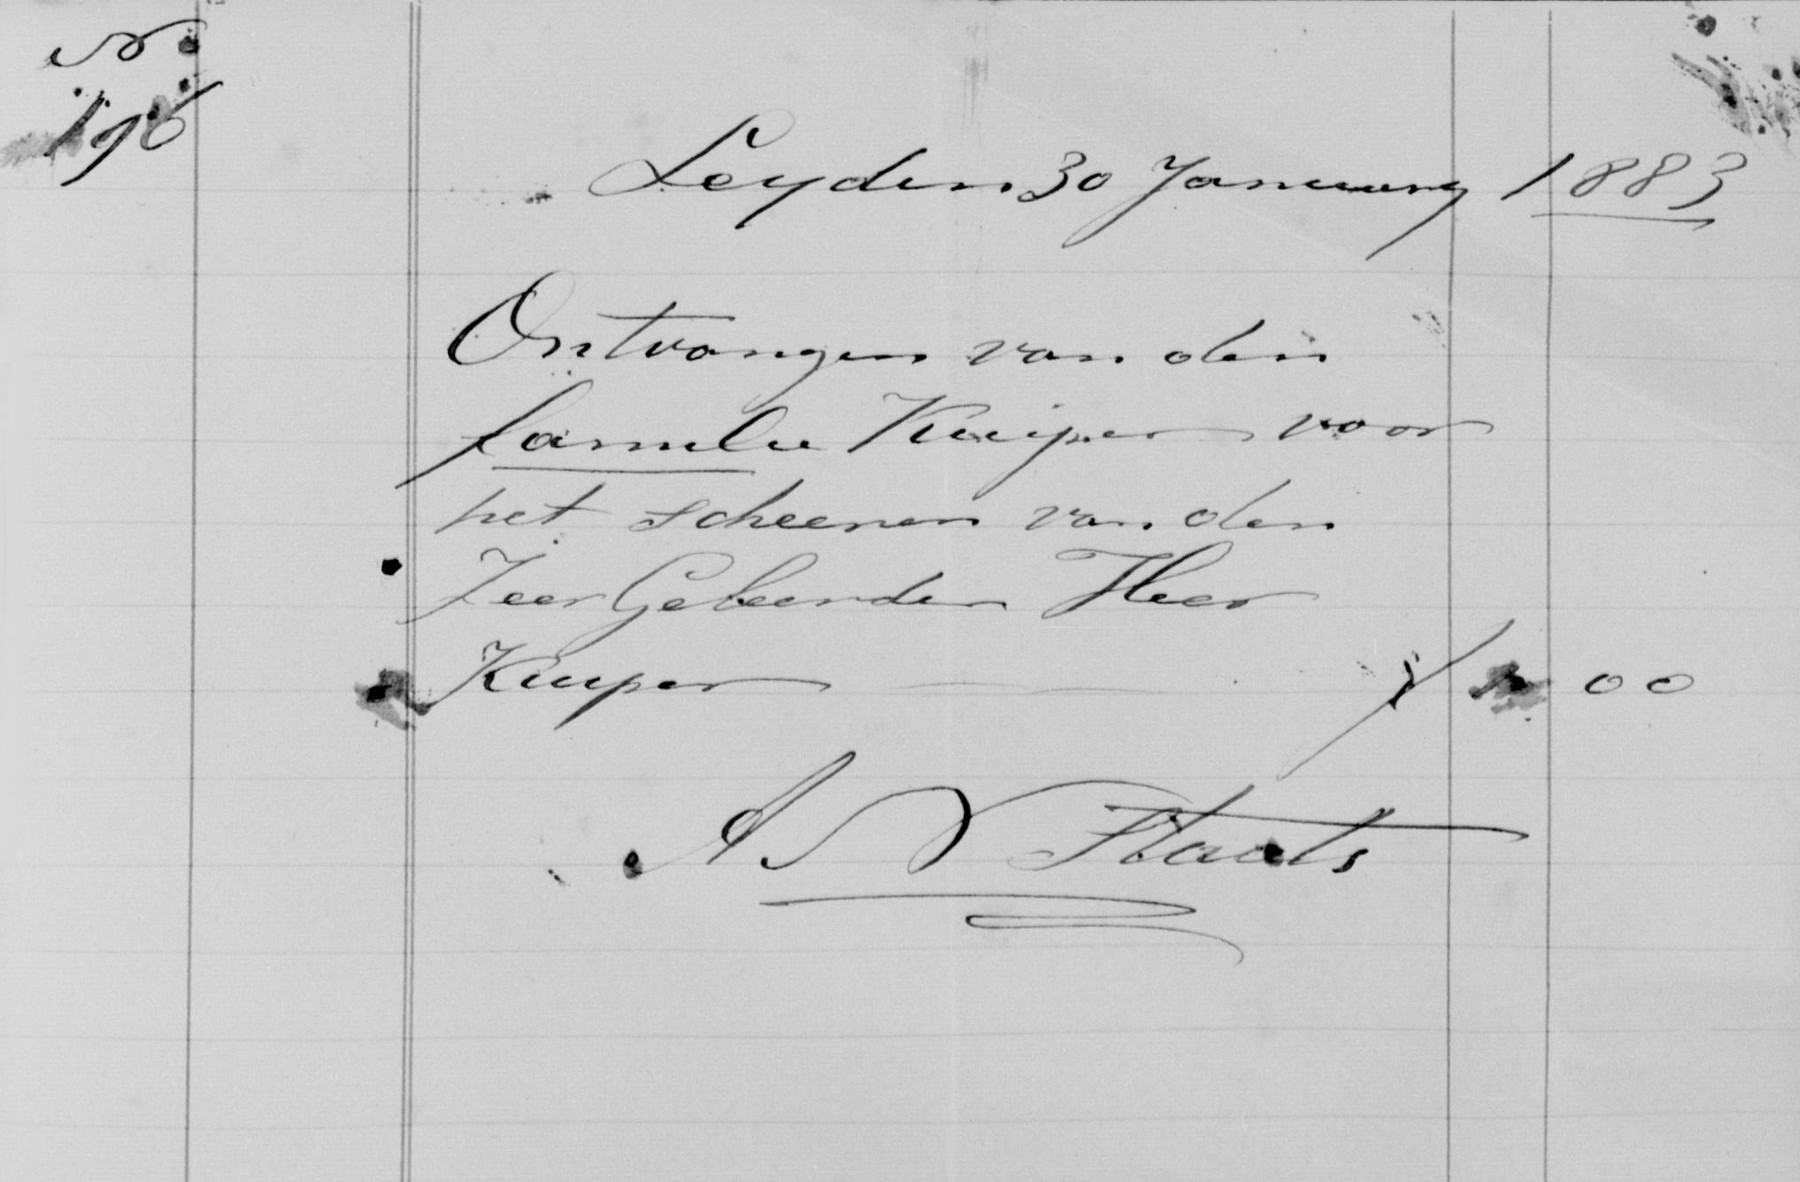 No
196
Leyden 30 January 1883
Ontvangen van den
familie Kuiper voor
het scheeren van den
Zeer Geleerden Heer
Kuiper f 00
A V Staats